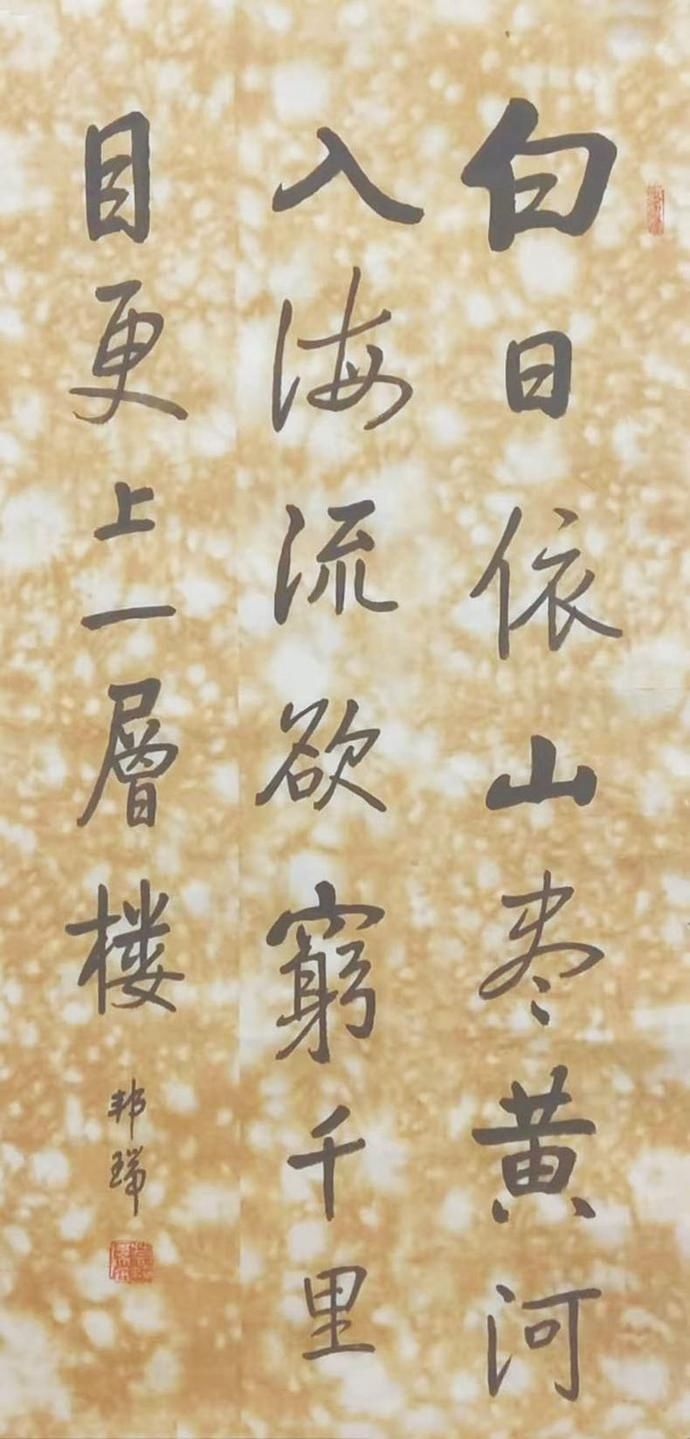 白日依山尽黄河
入海流欲窮千里
目更上一層楼
邦瑞